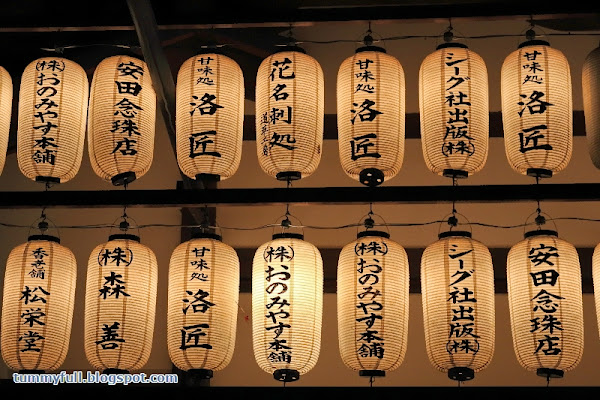 (株)おのみやす本舗
安田念珠店
甘味処 洛匠
花名刺処
甘味処 洛匠
シーグ社出版(株)
甘味処 洛匠
香老舗 松栄堂
(株)森善
甘味処 洛匠
(株)おのみやす本舗
(株)おのみやす本舗
シーグ社出版(株)
安田念珠店
tummyfull.blogspot.com